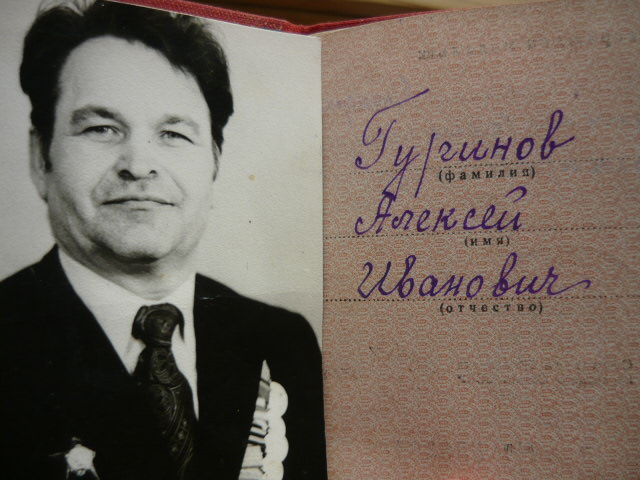 Гургинов
(фамилия)
Алексей
(имя)
Иванович
(отчество)